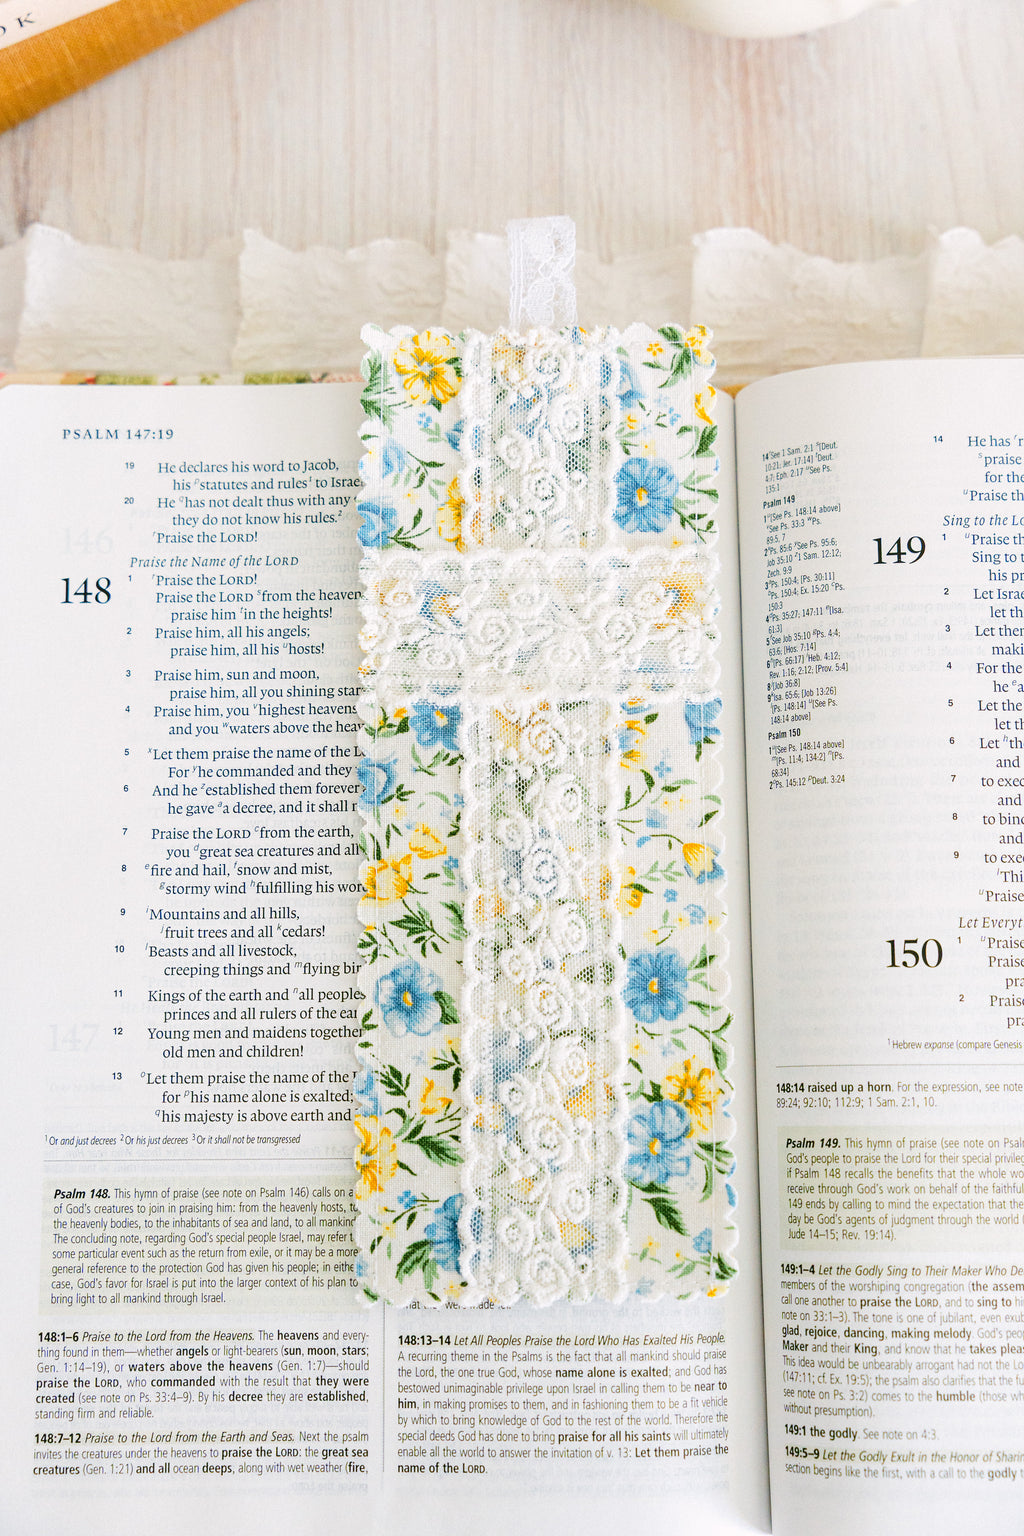 O K
PSALM 147:19
19 He declares his word to Jacob,
his statutes and rules to Israe
20 He has not dealt thus with any
they do not know his rules.
Praise the LORD!
Praise the Name of the LORD
148
1 Praise the LORD!
Praise the LORD from the heaven
praise him in the heights!
2 Praise him, all his angels;
praise him, all his hosts!
3 Praise him, sun and moon,
praise him, all you shining star
4 Praise him, you highest heavens
and you waters above the heav
5 Let them praise the name of the L
For he commanded and they
6 And he established them forever
he gave a decree, and it shall
7 Praise the LORD from the earth,
you great sea creatures and all
8 fire and hail, snow and mist,
stormy wind fulfilling his wor
9 Mountains and all hills,
fruit trees and all cedars!
10 Beasts and all livestock,
creeping things and flying bir
11 Kings of the earth and all peoples
princes and all rulers of the ear
12 Young men and maidens together
old men and children!
13 Let them praise the name of the
for his name alone is exalted;
his majesty is above earth and
1 Or and just decrees 2 Or his just decrees 3 Or it shall not be transgressed
Psalm 148. This hymn of praise (see note on Psalm 146) calls on a
of God's creatures to join in praising him: from the heavenly hosts, to
the heavenly bodies, to the inhabitants of sea and land, to all mankind
The concluding note, regarding God's special people Israel, may refer t
some particular event such as the return from exile, or it may be a more
general reference to the protection God has given his people; in eithe
case, God's favor for Israel is put into the larger context of his plan to
bring light to all mankind through Israel.
148:1–6 Praise to the Lord from the Heavens. The heavens and every-
thing found in them—whether angels or light-bearers (sun, moon, stars;
Gen. 1:14–19), or waters above the heavens (Gen. 1:7)—should
praise the LORD, who commanded with the result that they were
created (see note on Ps. 33:4–9). By his decree they are established,
standing firm and reliable.
148:7–12 Praise to the Lord from the Earth and Seas. Next the psalm
invites the creatures under the heavens to praise the LORD: the great sea
creatures (Gen. 1:21) and all ocean deeps, along with wet weather (fire,
were made
148:13–14 Let All Peoples Praise the Lord Who Has Exalted His People.
A recurring theme in the Psalms is the fact that all mankind should praise
the Lord, the one true God, whose name alone is exalted; and God has
bestowed unimaginable privilege upon Israel in calling them to be near to
him, in making promises to them, and in fashioning them to be a fit vehicle
by which to bring knowledge of God to the rest of the world. Therefore the
special deeds God has done to bring praise for all his saints will ultimately
enable all the world to answer the invitation of v. 13: Let them praise the
name of the LORD.
14 See 1 Sam. 2:1 [Deut.
10:21; Jer. 17:14] Deut.
4:7; Eph. 2:17 See Ps.
135:1
Psalm 149
1 [See Ps. 148:14 above]
See Ps. 33:3 Ps.
89:5, 7
2 Ps. 85:6 See Ps. 95:6;
Job 35:10 1 Sam. 12:12;
Zech. 9:9
3 Ps. 150:4; [Ps. 30:11]
Ps. 150:4; Ex. 15:20 Ps.
150:3
4 Ps. 35:27; 147:11 [Isa.
61:3]
5 See Job 35:10 Ps. 4:4;
63:6; [Hos. 7:14]
6 [Ps. 66:17] Heb. 4:12;
Rev. 1:16; 2:12; [Prov. 5:4]
8 [Job 36:8]
9 Isa. 65:6; [Job 13:26]
[Ps. 148:14] [See Ps.
148:14 above]
Psalm 150
1 [See Ps. 148:14 above]
[Ps. 11:4; 134:2] [Ps.
68:34]
2 Ps. 145:12 Deut. 3:24
14 He has
praise
for the
Praise th
Sing to the Lo
149
1 Praise th
Sing to
his pr
2 Let Israe
let th
3 Let them
maki
4 For the
he a
5 Let the
let th
6 Let th
and
7 to exec
and
8 to bind
and
9 to exec
Thi
Praise
Let Everyt
150
1 Praise
Praise
pra
2 Praise
pra
1 Hebrew expanse (compare Genesis
148:14 raised up a horn. For the expression, see note
89:24; 92:10; 112:9; 1 Sam. 2:1, 10.
Psalm 149. This hymn of praise (see note on Psaln
God's people to praise the Lord for their special privileg
if Psalm 148 recalls the benefits that the whole wo
receive through God's work on behalf of the faithful
149 ends by calling to mind the expectation that the
day be God's agents of judgment through the world (
Jude 14–15; Rev. 19:14).
149:1–4 Let the Godly Sing to Their Maker Who De
members of the worshiping congregation (the assem
call one another to praise the LORD, and to sing to hi
note on 33:1–3). The tone is one of jubilant, even exub
glad, rejoice, dancing, making melody. God's peop
Maker and their King, and know that he takes pleas
This idea would be unbearably arrogant had not the Lo
(147:11; cf. Ex. 19:5); the psalm also clarifies that the fu
see note on Ps. 3:2) comes to the humble (those wh
without presumption).
149:1 the godly. See note on 4:3.
149:5–9 Let the Godly Exult in the Honor of Sharin
section begins like the first, with a call to the godly t